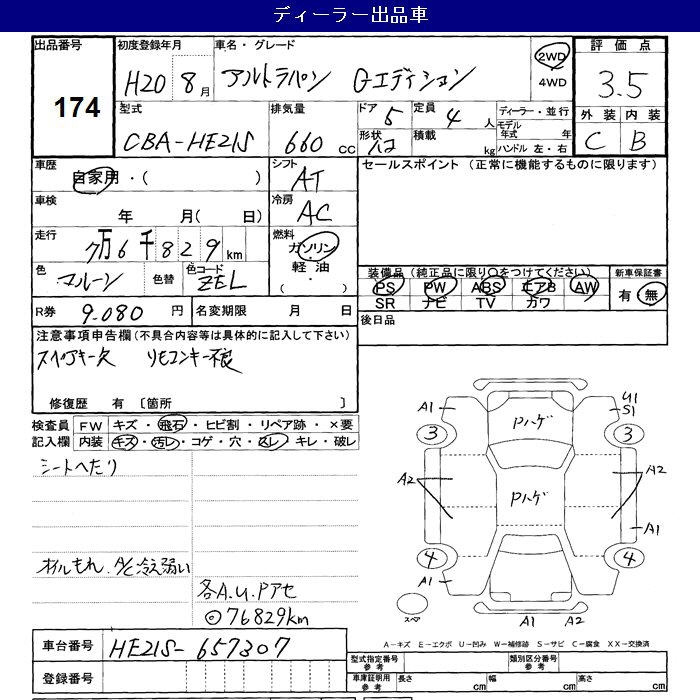 ディーラー出品車
出品番号 174
初度登録年月 H20 8月
車名・グレード アルトラパン Gエディション
2WD
4WD
評価点 3.5
外装 C 内装 B
型式 CBA-HE21S
排気量 660 cc
ドア 5
定員 4 人
形状 ハコ
積載 kg
ディーラー・並行
モデル年式 年
ハンドル 左・右
車歴 自家用・( )
シフト AT
セールスポイント (正常に機能するものに限ります)
車検 年 月( 日)
冷房 AC
走行 7万6千829km
燃料 ガソリン
軽油
・( )
色 マルーン
色替
色コード ZEL
装備品(純正品に限り〇をつけてください)
新車保証書
PS PW ABS エアB AW
SR ナビ TV カワ
有・無
R券 9.080 円
名変期限 月 日
後日品
注意事項申告欄(不具合内容等は具体的に記入して下さい)
スペアキー欠 リモコンキー不良
修復歴 有 〔箇所 〕
検査員記入欄
FW キズ・飛石・ヒビ割・リペア跡・×要
内装 キズ・汚レ・コゲ・穴・スレ・キレ・破レ
シートへたり
オイルもれ、A/C冷え弱い
各A.U.Pアセ
◎76829km
A1 U1
S1
Pハゲ
3 3
A2 Pハゲ A2
A1
4 4
A1
スペア
A1 A2
車台番号 HE21S-657307
登録番号
A-キズ E-エクボ U-凹み W-補修跡 S-サビ C-腐食 XX-交換済
型式指定番号 参考
類別区分番号 参考
車庫証明用 参考
長さ cm 幅 cm 高さ cm